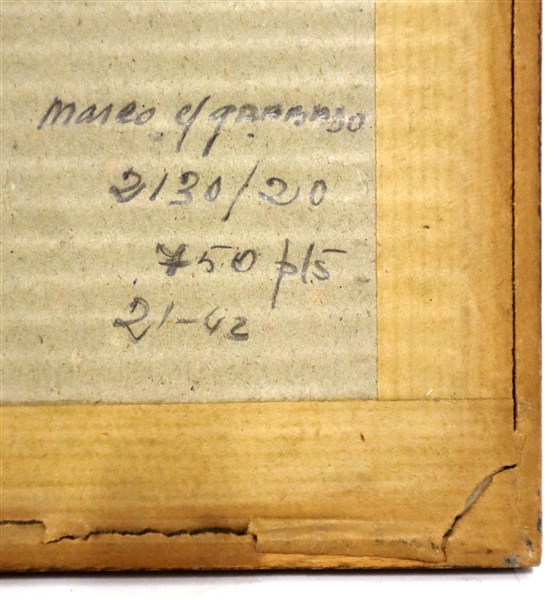 marco c/ grabado
2130/20
750 pts
21-42